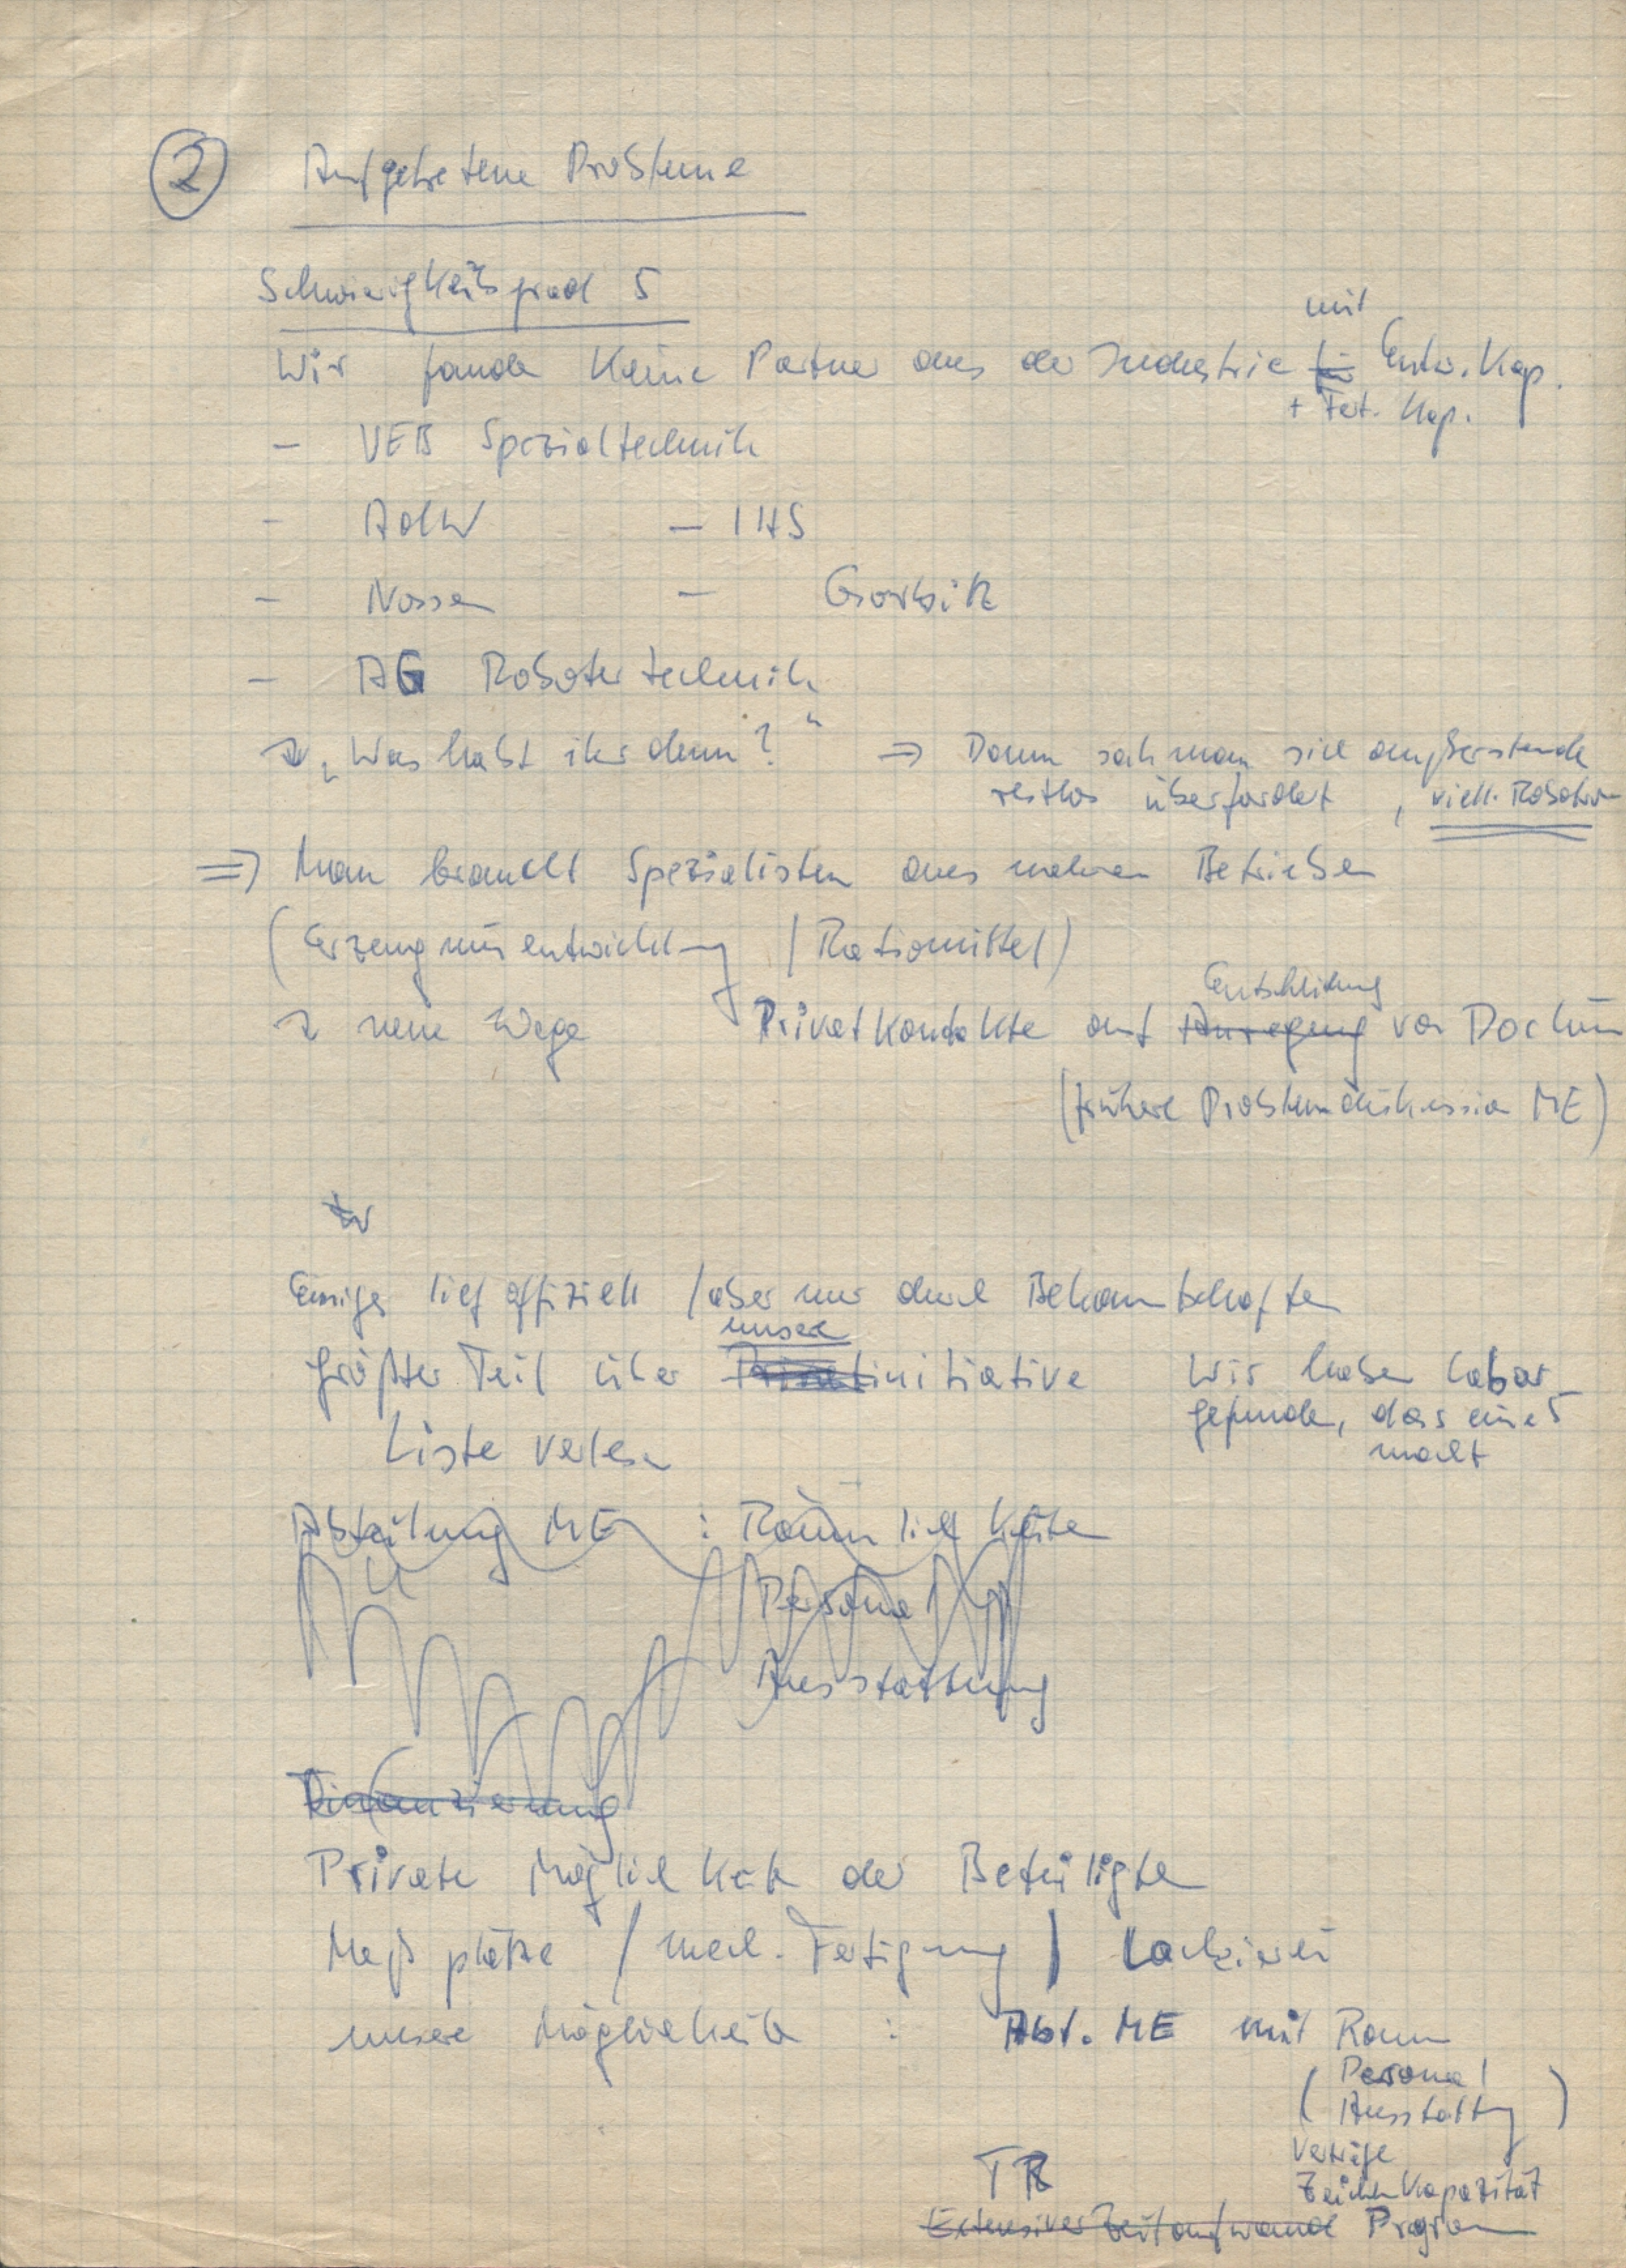 2 Aufgetretene Probleme
Schwierigkeitsgrad 5
mit
Wir fanden keine Partner aus der Industrie für Entw. Kap.
+ Fert. Kap.
- VEB Spezialtechnik
- AdW - IHS
- Nossen - Gorbitz
- AG Robotertechnik
"Was habt ihr denn?" ⇒ Dann sah man sich außerstande
restlos überfordert, viell. Robotron
⇒ Man braucht Spezialisten aus mehreren Betrieben
(Erzeugnisentwicklung / Ratiomittel)
Entscheidung
neue Wege Privatkontakte auf Anregung von
(frühere Problemdiskussion ME)
Einiges lief offiziell / aber nur durch Bekanntschaften
unsere
größter Teil über Privatinitiative Wir haben Labor
gefunden, das eines
macht
Liste verlesen
Abteilung ME : Räumlichkeiten
Personal
Ausstattung
Finanzierung
Private Möglichkeiten der Beteiligten
Meßplätze / mech. Fertigung / Lackiererei
unsere Möglichkeiten : Abt. ME mit Raum
( Personal
Ausstattung )
Verträge
Zeichenkapazität
TR
Extensiver Zeitaufwand Programm